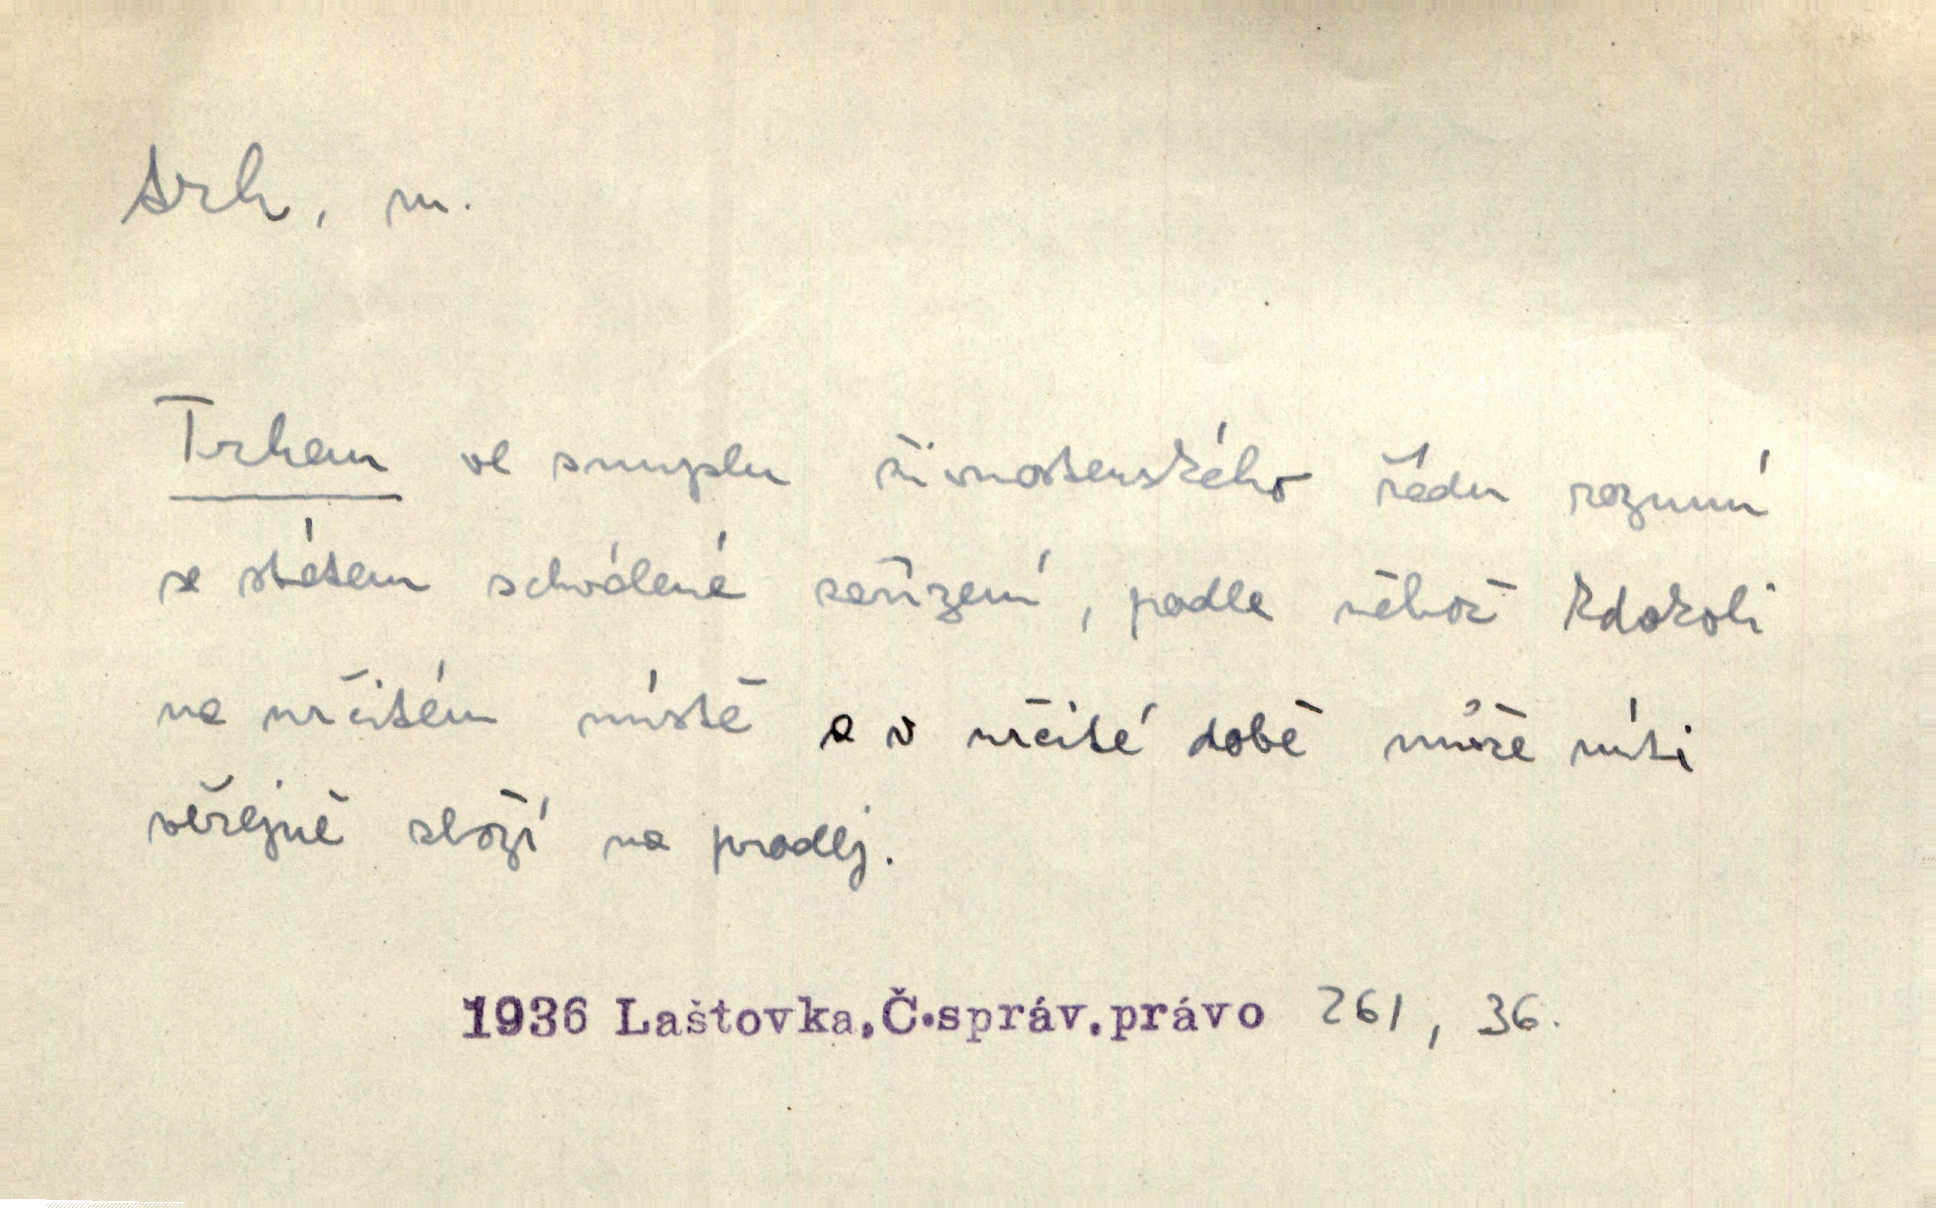 trh, m.
Trhem ve smyslu živnostenského řádu rozumí
se státem schválené zařízení, podle něhož kdokoli
na určitém místě a v určité době může míti
veřejně zboží na prodej.
1936 Laštovka,Č.správ.právo 261, 36.